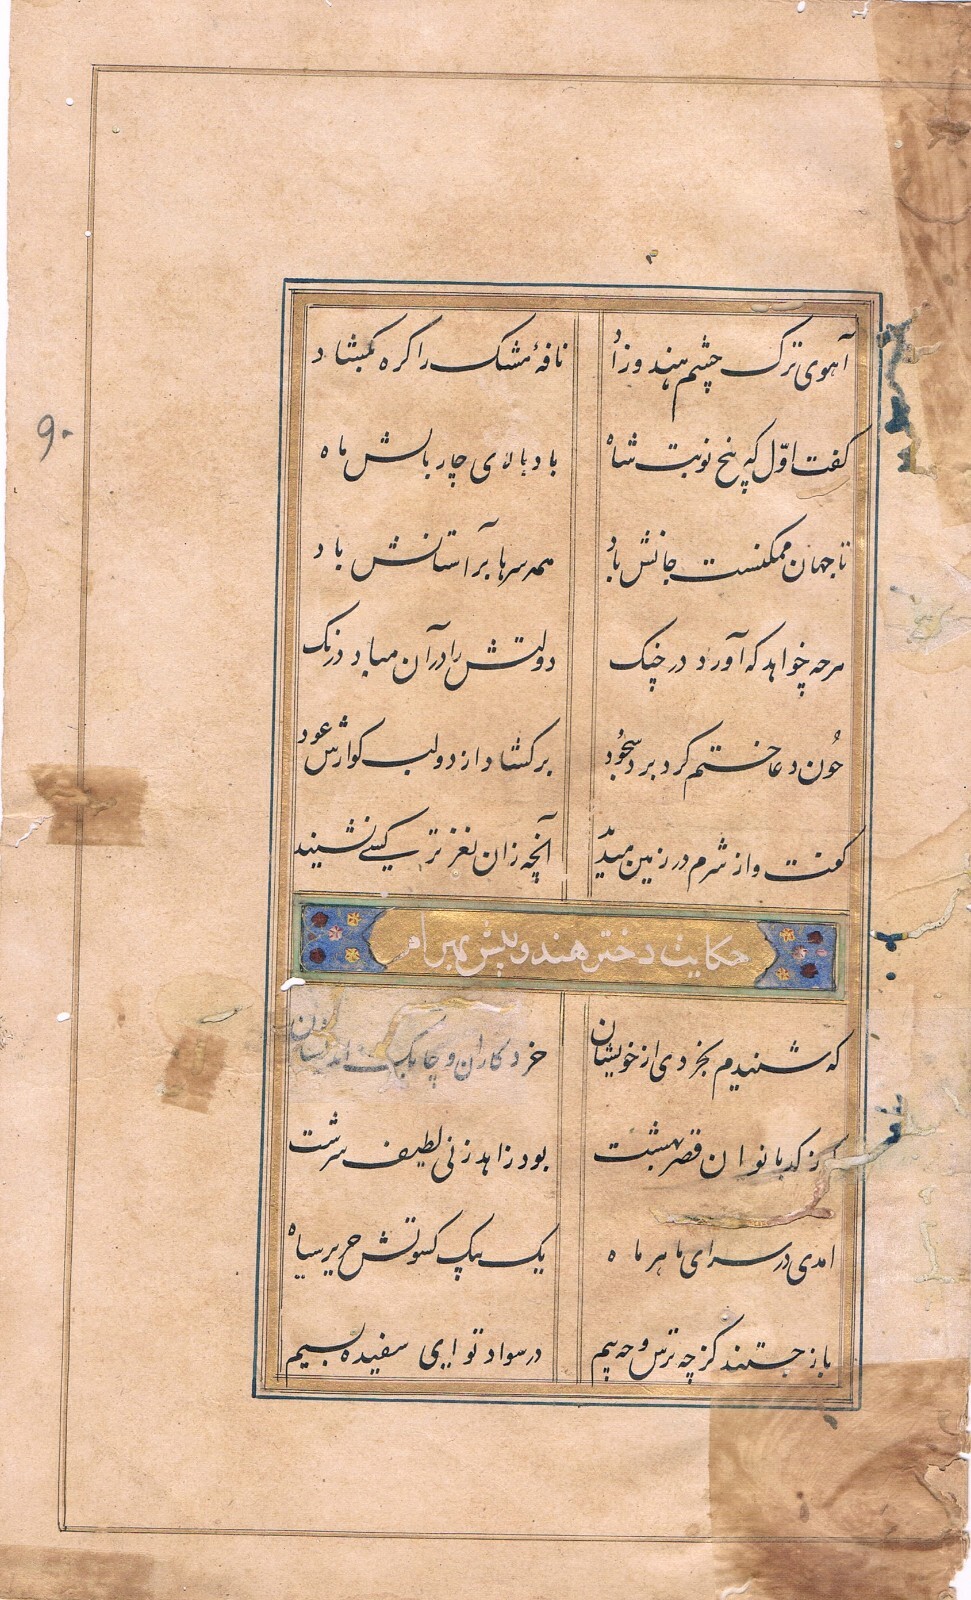 ۹۰
آهوی ترک چشم هندو زاد نافهٔ مشک را گره بگشاد
گفت اوّل که پنج نوبت شاه باد بالای چار بالش ماه
تا جهان ممکنست جانش باد همه سرها بر آستانش باد
هرچه خواهد که آورد در چنگ دولتش را در آن مباد درنگ
چون دعا ختم کرد برد سجود برکشاد از دو لب کوارش عود
گفت و از شرم در زمین میدید آنچه زان نغزتر کسی نشنید
حکایت دختر هندو پیش بهرام
که شنیدم بخردی از خویشان خرد کاران و چابک اندیشان
کدبانوان قصر بهشت بود زاهد زنی لطیف سرشت
امدی در سرای ما هر ماه یک بیک کسوتش حریر سیاه
باز جستند کز چه ترس و چه بیم در سواد تو ایی سفیده سیم